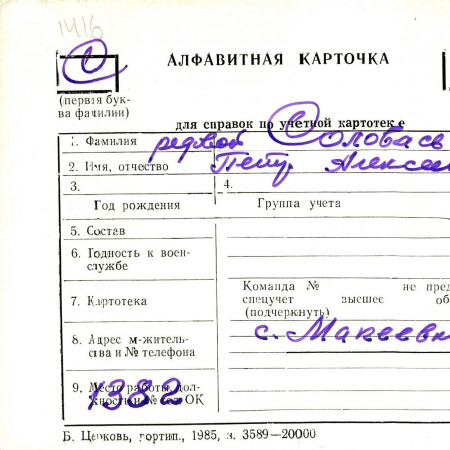 1416
С
АЛФАВИТНАЯ КАРТОЧКА
(первая бук-
ва фамилии)
для справок по учетной картотеке
1. Фамилия рядовой Соловьев
2. Имя, отчество Петр Алексан
3. 4.
Год рождения Группа учета
5. Состав
6. Годность к воен-
службе
Команда № не пред
7. Картотека спецучет высшее об
(подчеркнуть)
8. Адрес м-житель-
ства и № телефона с. Макеевк
9. Место работы, дол-
жность и № тел ОК 1382
Б. Церковь, гортип., 1985, з. 3589—20000